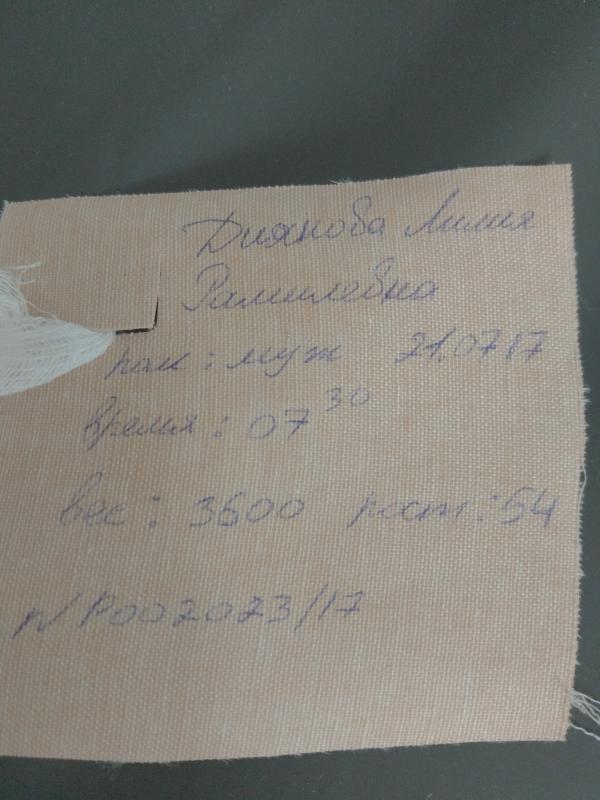 Диянова Лилия
Рамилевна
пол : муж 21.07 17
время : 07 30
вес : 3600 рост : 54
р/Р002023/17